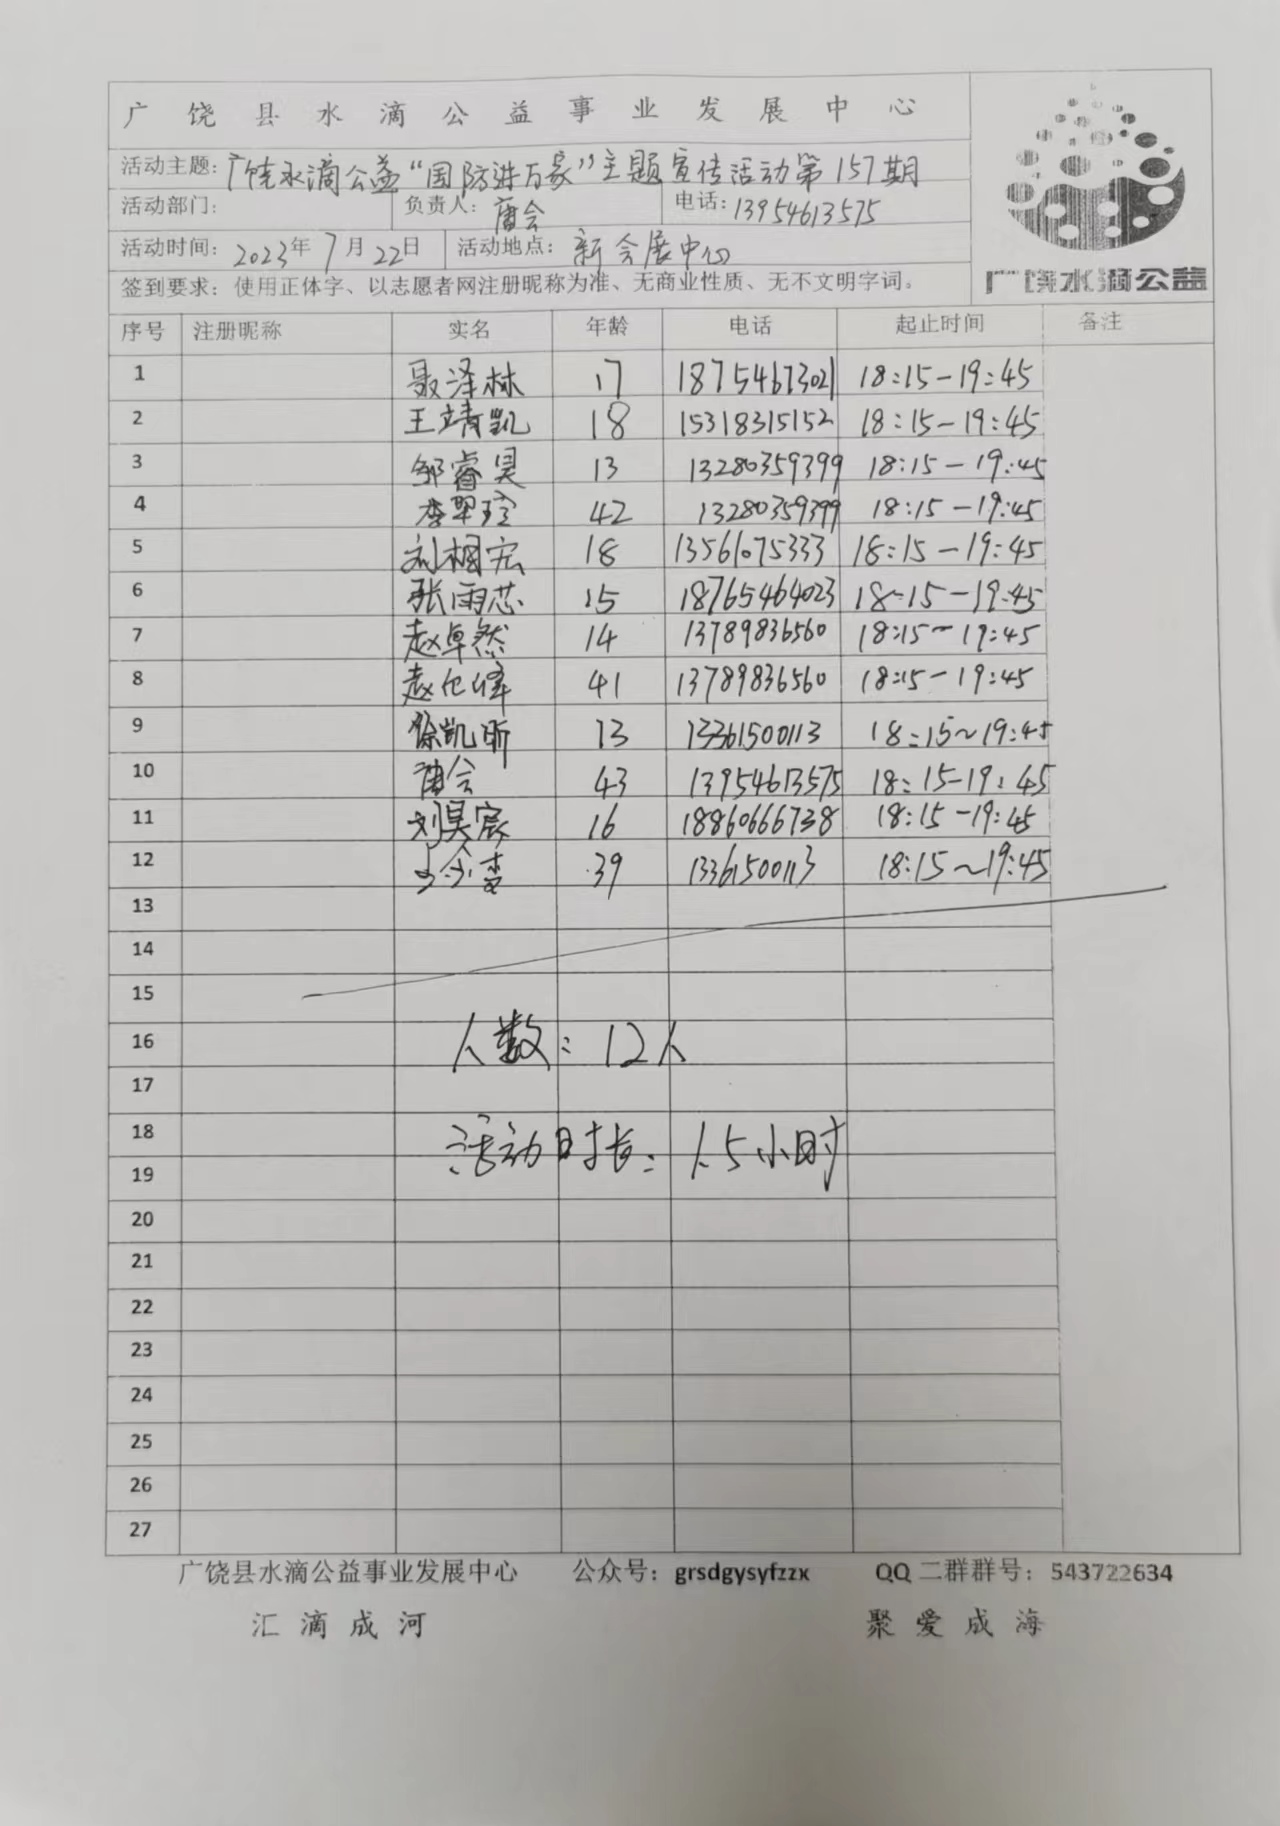 广饶县水滴公益事业发展中心
活动主题：广饶水滴公益“国防进万家”主题宣传活动第157期
活动部门： 负责人：唐会 电话：13954613575
活动时间：2023年7月22日 活动地点：新会展中心
签到要求：使用正体字、以志愿者网注册昵称为准、无商业性质、无不文明字词。
广饶水滴公益
序号 注册昵称 实名 年龄 电话 起止时间 备注
1 聂泽林 17 18754673021 18:15-19:45
2 王靖凯 18 15318315152 18:15-19:45
3 邹睿昊 13 13280359399 18:15-19:45
4 李翠 42 13280359399 18:15-19:45
5 刘桐宏 18 13561075333 18:15-19:45
6 张雨芯 15 18765464023 18:15-19:45
7 赵卓然 14 13789836560 18:15-19:45
8 赵 41 13789836560 18:15-19:45
9 徐凯昕 13 13361500113 18:15~19:45
10 唐会 43 13954613575 18:15-19:45
11 刘昊宸 16 18860666738 18:15-19:45
12 39 13361500113 18:15~19:45
13
14
15
16 人数：12人
17
18 活动时长：1.5小时
19
20
21
22
23
24
25
26
27
广饶县水滴公益事业发展中心 公众号：grsdgysyfzzx QQ二群群号：543722634
汇滴成河 聚爱成海